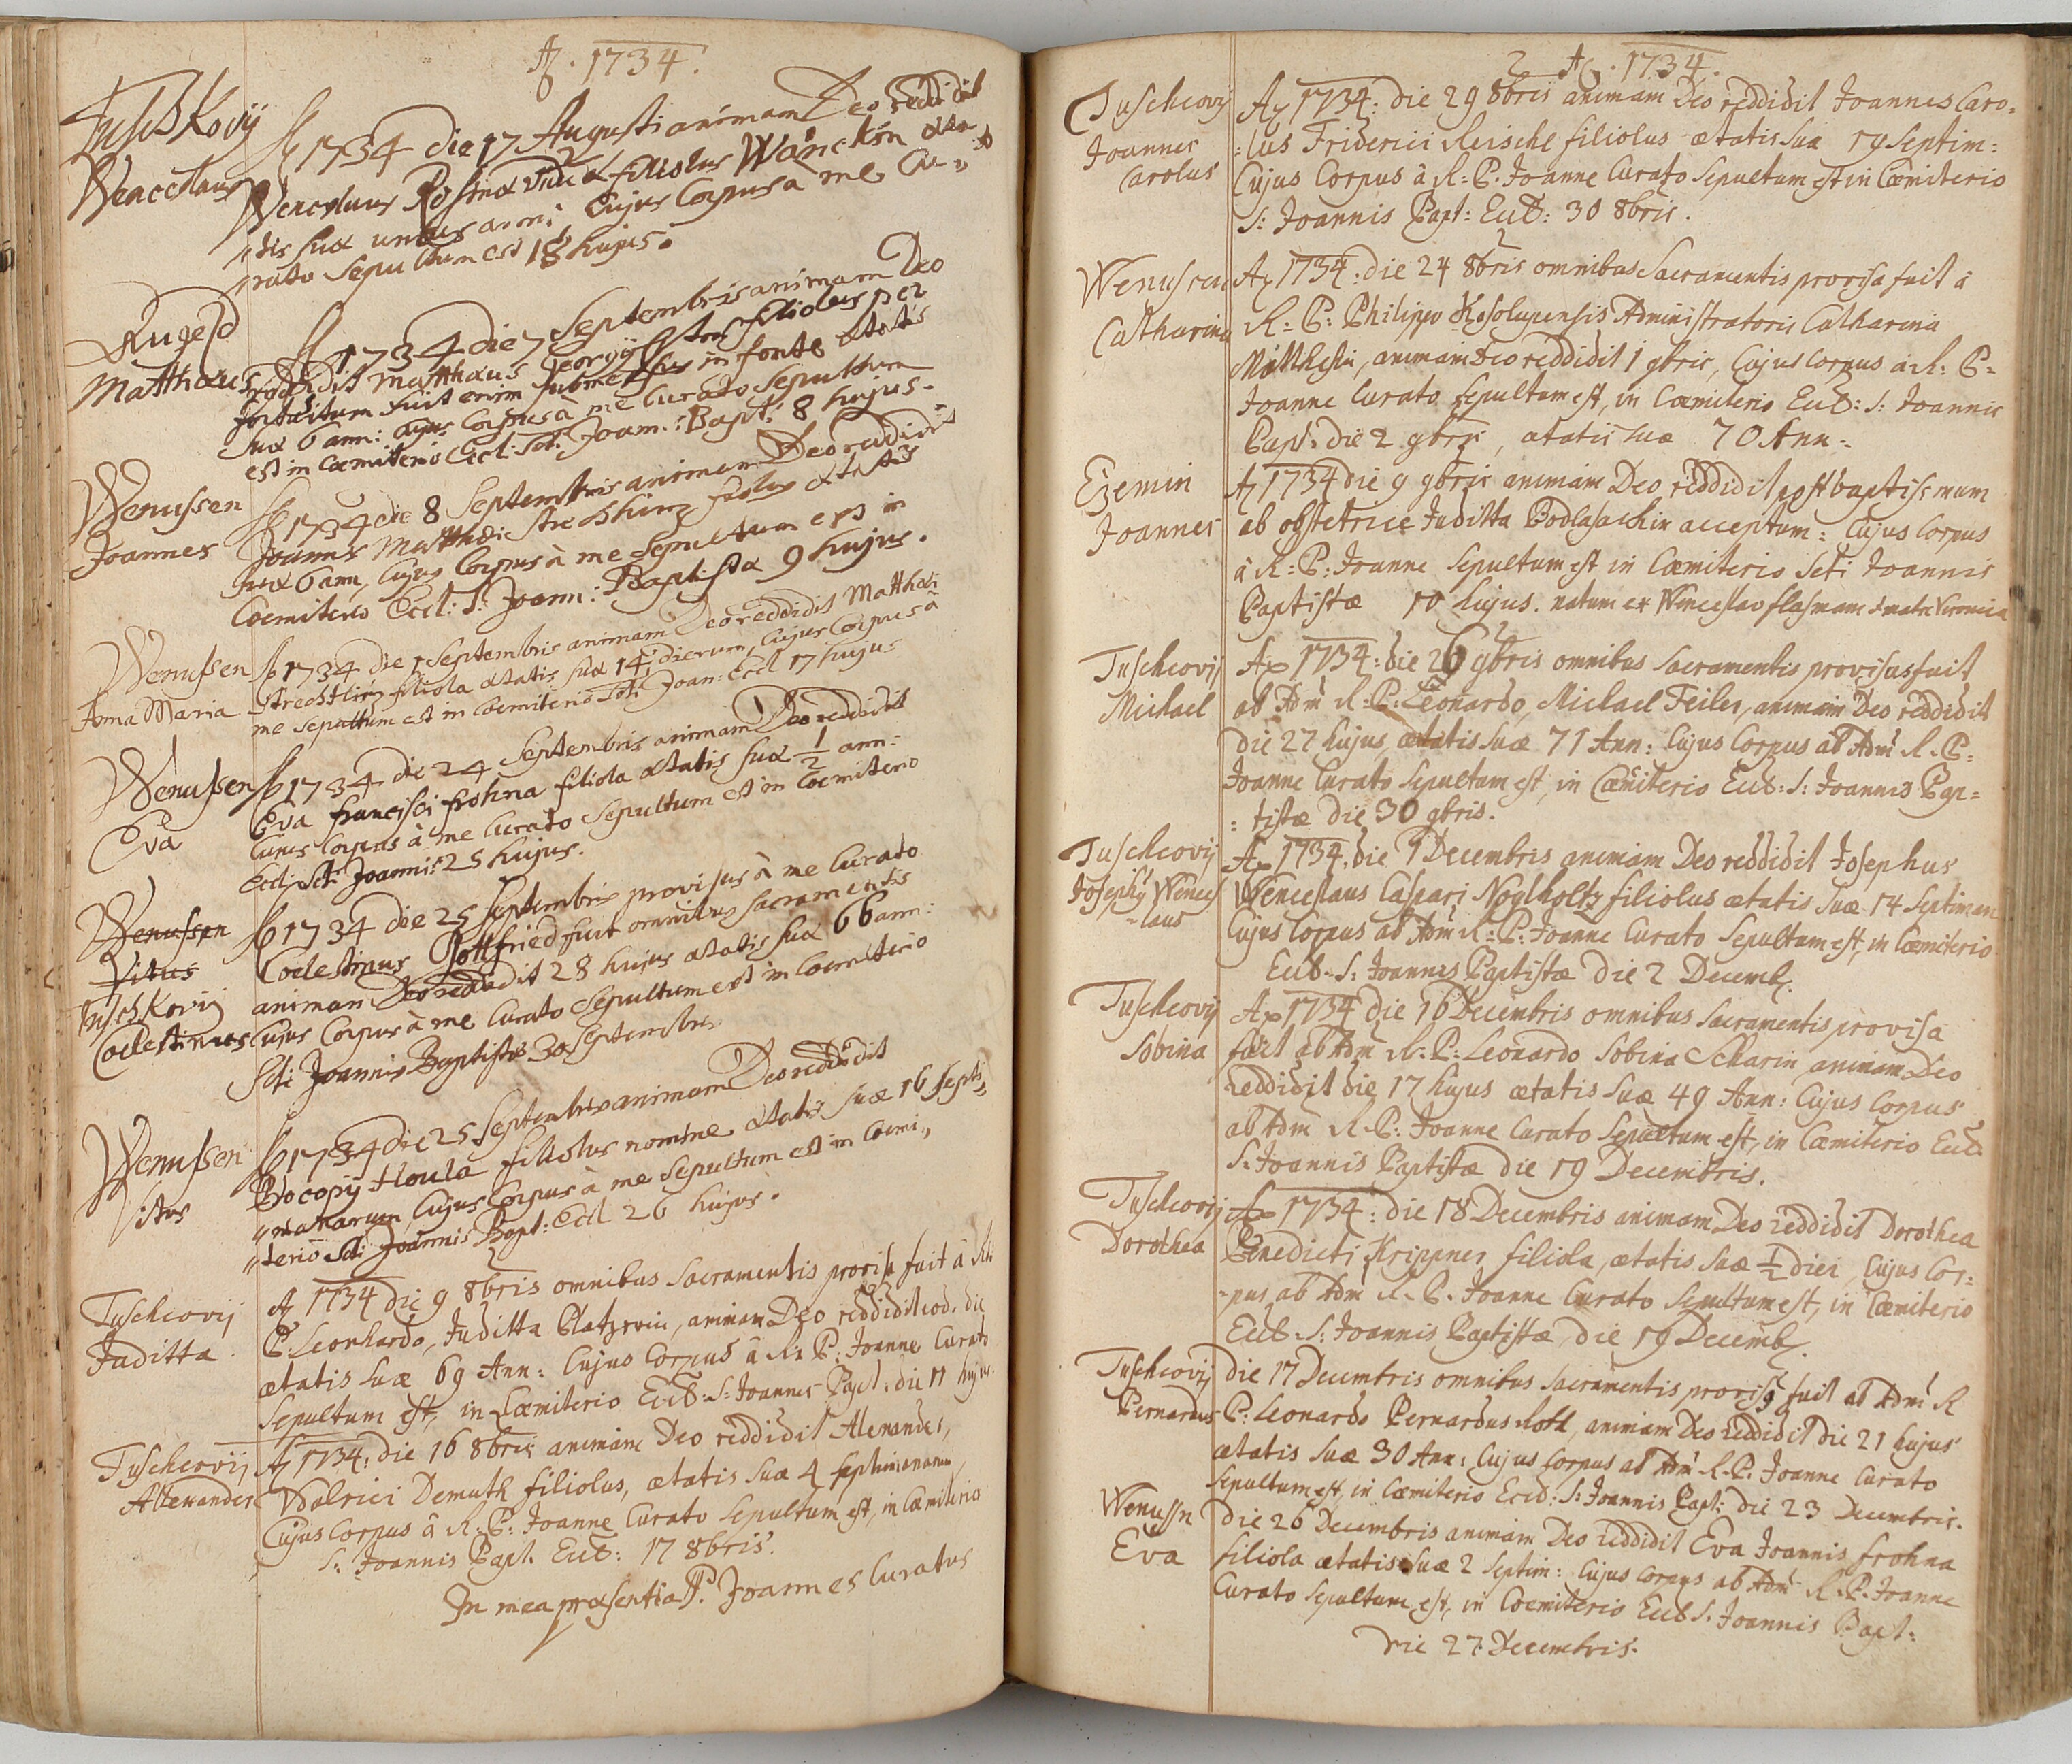 Aõ. 1734.
Tusch Kovij
Wenceslaus
Aõ 1734 die 17 Augusti animam Deo reddidit
Wenceslaus Rosinæ viduæ filiolus æta
tis suæ unius anni Cujus Corpus à me Cu„
„rato Sepultum est 18 hujus.
Kugest
Matthæus
Aõ 1734 die 7 Septembris animam Deo
reddidit Matthæus Georgij filiolus per
fortuitum fuit enim submersus in fonte ætatis
suæ 6 ann: cujus Corpus à me Curato Sepultum
est in Cœmiterio Eccl: Scti Joann: Bapt: 8 hujus.
Wenussen
Joannes
Aõ 1734 die 8 Septembris animam Deo reddidit
Joannes Matthæi filiolus ætatis
suæ 6 ann, Cujus Corpus à me Sepultum est in
Coemiterio Eccl: S: Joann: Baptistæ 9 hujus.
Wenussen
Anna Maria
Aõ 1734 die 1 Septembris animam Deo reddidit Matthæi
Strechtling filiola ætatis suæ 14 dierum, Cujus Corpus à
me Sepultum est in Coemiterio Scti Joan: Eccl 17 hujus
Wenussen
Eva
Aõ 1734 die 24 Septembris animam Deo reddidit
Eva Francisci Frohna filiola ætatis suæ 1/2 ann:
Cujus Corpus à me Curato Sepultum est in Coemiterio
Eccl: Scti Joannis 25 hujus.
Wenussen
Vitus
Tusch Kovij
Coelestinus
Aõ 1734 die 25 Septembris provisus à me Curato
Coelestinus Gottfried fuit omnibus sacramentis
animam Deo reddidit 28 hujus ætatis suæ 66 ann:
Cujus Corpus à me Curato Sepultum est in Coemiterio
Scti Joannis Baptistæ 30 Septembris
Wenussen
Vitus
Aõ 1734 die 25 Septembris animam Deo reddidit
Procopij Houla filiolus nomine ætatis suæ 16 septi„
„manarum, Cujus Corpus à me Sepultum est in Coemi„
„terio Scti Joannis Bapt: Eccl 26 hujus.
Tuschcovij
Juditta
Aõ 1734 die 9 8bris omnibus Sacramentis provisa fuit à R:
P: Leonhardo, Juditta Platzerin, animam Deo reddidit eod. die
ætatis suæ 69 Ann: Cujus Corpus â R: P: Joanne Curato
Sepultum est, in Cœmiterio Eccl: S: Joannis Bapt. die 11 hujus.
Tuschcovij
Allexander
Aõ 1734: die 16 8bris animam Deo reddidit Alexander,
Vdalrici Demuth filiolus, ætatis suæ 4 septimanarum
Cujus Corpus â R: P: Joanne Curato Sepultum est, in Cœmiterio
S: Joannis Bapt. Eccl: 17 8bris.
In mea præsentia P. Joannes Curatus
Aõ. 1734.
Tuschcovij
Joannes
Carolus
Aõ 1734: die 29 8bris animam Deo reddidit Joannes Caro=
=lus Friderici Reischl filiolus ætatis suæ 19 Septim:
Cujus Corpus â R: P. Joanne Curato Sepultum est in Cœmiterio
S: Joannis Bapt: Eccl: 30 8bris.
Wenussen
Catharina
Aõ 1734: die 24 8bris omnibus Sacramentis provisa fuit â
R: P: Philippo Kosolupensis Administratoris Catharina
animam Deo reddidit 1 9bris, Cujus Corpus à R: P:
Joanne Curato sepultum est, in Cœmiterio Eccl: S: Joannis
Bapt: die 2 9bris, ætatis suæ 70 Ann:
Ezemin
Joannes
Aõ 1734 die 9 9bris animam Deo reddidit post baptismum
ab obstetrice Juditta Podlasachin acceptum: Cujus Corpus
â R: P: Joanne Sepultum est in Cœmiterio Scti Joannis
Baptistæ 10 hujus. natum ex Wenceslao flasman & matre Veronica
Tuschcovij
Michael
Aõ 1734: die 26 9bris omnibus Sacramentis provisus fuit
ab Adm̃ R: P: Leonardo, Michael Feiler, animam Deo reddidit
die 27 hujus ætatis suæ 71 Ann: Cujus Corpus ab Adm̃ R. P:
Joanne Curato Sepultum est, in Cœmiterio Eccl: S: Joannis Bap=
=tistæ die 30 9bris.
Tuschcovij
Josephq Wences
=laus
Aõ 1734: die 1 Decembris animam Deo reddidit Josephus
Wenceslaus Caspari Noglholtz filiolus ætatis suæ 14 Septiman
Cujus Corpus ab Adm̃ R: P: Joanne Curato Sepultum est, in Cœmiterio
Eccl: S: Joannis Baptistæ die 2 Decemb.
Tuschcovij
Sobina
Aõ 1734 die 16 Decembris omnibus Sacramentis provisa
fuit ab Adm̃ R: P: Leonardo Sobina Scharin animam Deo
reddidit die 17 hujus ætatis suæ 49 Ann: Cujus Corpus
ab Adm̃ R. P: Joanne Curato Sepultum est, in Cœmiterio Eccl:
S: Joannis Baptistæ die 19 Decembris.
Tuschcovij
Dorothea
Aõ 1734: die 18 Decembris animam Deo reddidit Dorothea
Benedicti Krippner filiola, ætatis suæ 1/2 diei, Cujus Cor=
=pus ab Adm̃ R. P. Joanne Curato Sepultum est, in Cœmiterio
Eccl: S: Joannis Baptistæ, die 19 Decemb.
Tuschcovij
Bernardus
die 17 Decembris omnibus Sacramentis provisq fuit ab Adm̃ R
P: Leonardo Bernardus Roth, animam Deo reddidit die 21 hujus
ætatis suæ 30 Ann: Cujus Corpus ab Adm̃ R. P. Joanne Curato
Sepultum est, in Cœmiterio Eccl: S: Joannis Bapt: die 23 Decembris.
Wenussn
Eva
die 26 Decembris animam Deo reddidit Eva Joannis Frohna
filiola ætatis suæ 2 Septim: Cujus Corpus ab Adm̃ R. P. Joanne
Curato Sepultum est, in Coemiterio Eccl S: Joannis Bapt:
die 27 Decembris.